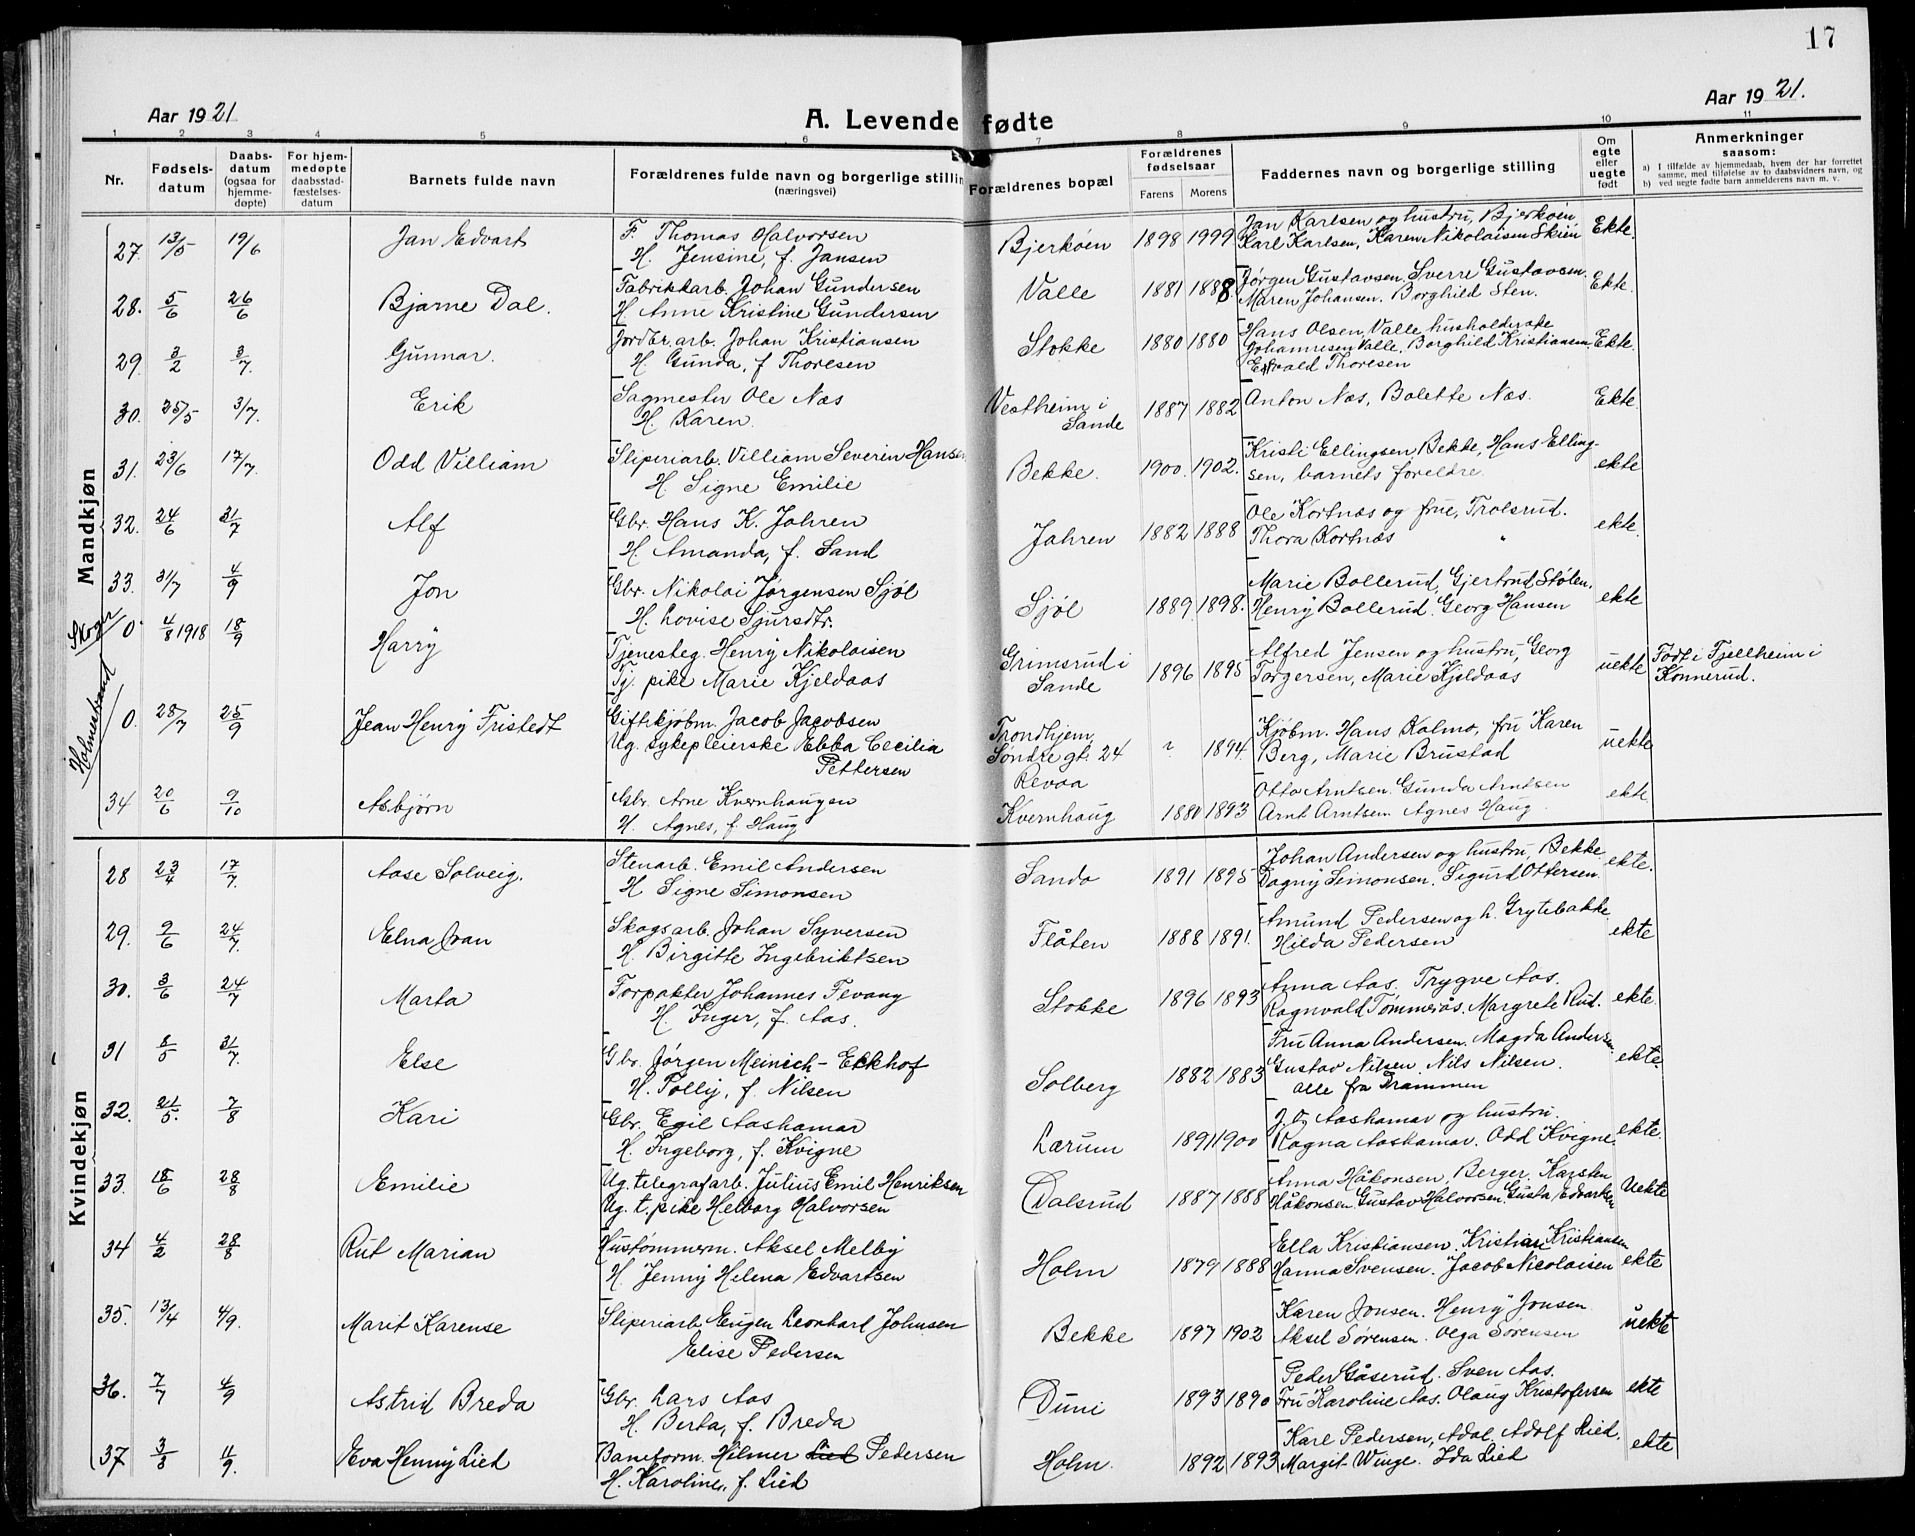 17
Aar 1921
A. Levende fødte
Aar 1921.
1 2 3 4 5 6 7 8 9 10 11
Nr.
Fødsels-
datum
Daabs-
datum
(ogsaa for
hjemme-
døpte)
For hjem-
medøpte
daabsstad-
fæstelses-
datum
Barnets fulde navn
Forældrenes fulde navn og borgerlige stillin
(næringsvei)
Forældrenes bopæl
Forældrenes
fødselsaar
Farens Morens
Faddernes navn og borgerlige stilling
Om
egte
eller
uegte
født
Anmerkninger
saasom:
a) I tilfælde av hjemmedaab, hvem der har forrettet
samme, med tilføielse av to daabsvidners navn, og
b) ved uegte fødte barn anmelderens navn m. v.
Mandkjøn
27. 13/5 19/6 Jan Edvart
F. Thomas Halvorsen
H. Jensine, f. Jansen
Bjerköen 1898 1999
Jan Karlsen og hustru, Bjerköen
Karl Karlsen, Karen Nikolaisen Skien
Ekte.
28. 5/6 26/6 Bjarne Dal.
Fabrikkarb. Johan Gundersen
H. Anne Kristine Gundersen
Valle 1881 1888
Jørgen Gustavsen, Sverre Gustavsen.
Maren Johansen. Borghild Sten.
Ekte.
29. 3/2 3/7. Gunnar.
Jordbr. arb. Johan Kristiansen
H. Gunda, f Thoresen
Stokke 1880 1880
Hans Olsen, Valle, husholderske
Johannesen Valle, Borghild Kristiansen.
Edvald Thoresen
Ekte.
30. 25/5 3/7. Erik
Sagmester Ole Næs
H. Karen.
Vestheim i
Sande
1887 1882
Anton Næs, Bolette Næs.
Ekte.
31. 23/6 17/7. Odd Villiam
Sliperiarb. Villiam Severin Hansen
H. Signe Emilie
Bekke. 1900. 1902.
Kristi Ellingsen, Bekke, Hans Elling-
sen, barnets foreldre.
ekte
32. 24/6 31/7 Alf
Gbr. Hans K. Jahren
H. Amanda, f. Sand
Jahren 1882 1888
Ole Kortnæs og frue, Trolsrud.
Thora Kortnæs "
ekte
33. 31/7 4/9 Jon
Gbr. Nikolai Jørgensen Sjøl
H. Lovise Sjursdtr.
Sjøl 1889 1898.
Marie Bollerud, Gjertrud Stølen,
Henry Bollerud, Georg Hansen
ekte
Skoger
0 4/8 1918 18/9 Harry
Tjenesteg. Henry Nikolaisen
Tj. pike Marie Kjeldaas
Grimsrud i
Sande
1896 1895
Alfred Jensen og hustru, Georg
Torgersen, Marie Kjeldaas
uekte
Født i Fjellheim i
Konnerud.
Holmestrand
0. 28/7 25/9 Jean Henry Fristedt
Gift kjøbm. Jacob Jacobsen
Ug. sykepleierske Ebba Cecilia
Pettersen
Trondhjem,
Søndre gt. 24
Revaa
? 1894.
Kjøbm. Hans Kalmo, fru Karen
Berg, Marie Brustad
uekte
34 20/6 9/10 Asbjørn
Gbr. Arne Kvernhaugen
H. Agnes, f. Haug
Kvernhaug 1880 1893
Otto Arntsen. Gunda Arntsen
Arnt Arntsen Agnes Haug.
ekte
Kvindekjøn
28 23/4 17/7. Aase Solveig.
Stenarb. Emil Andersen
H. Signe Simonsen
Sando 1891 1895
Johan Andersen og hustru, Bekke
Dagny Simonsen. Sigurd Ottersen
ekte.
29. 9/6 24/7. Elna Joan
Skogsarb. Johan Syversen
H. Birgitte Ingebriktsen
Flåten 1888 1891.
Amund Pedersen og h. Grytebakke
Hilda Pedersen
ekte
30. 3/6 24/7 Marta
Forpakter Johannes Tevang
H. Inger, f. Aas.
Stokke 1896 1893
Anna Aas. Trygve Aas.
Ragnvald Tømmerås. Margrete Rud.
ekte.
31 8/5 31/7. Else
Gbr. Jørgen Meinich-Eckhof
H. Polly, f. Nilsen
Solberg 1882 1883
Fru Anna Andersen. Magda Andersen
Gustav Nilsen. Nils Nilsen.
alle fra Drammen
ekte.
32. 21/5. 7/8 Kari
Gbr. Egil Aashamar
H. Ingeborg, f. Kvigne
Lærum 1891 1900
J. O. Aashamar og hustru.
Ragna Aashamar. Odd Kvigne.
ekte.
33. 18/6 28/8 Emilie
Ug. telegrafarb. Julius Emil Henriksen
Ug. t. pike Helborg Halvorsen
Dalsrud 1887 1888
Anna Håkonsen, Berger, Karsten
Håkonsen. Gustav Halvorsen. Gusta Edvartsen
Uekte
34 4/2 28/8 Rut Marian
Hustømmerm. Aksel Melby
H. Jenny Helena Edvartsen
Holm 1879 1888
Ella Kristiansen. Kristian Kristiansen
Hanna Svensen. Jacob Nicolaisen
ekte
35. 13/4 4/9. Marit Karense
Sliperiarb. Eugen Leonhart Johnsen
Elise Pedersen
Bekke 1897 1902
Karen Jonsen. Henry Jonsen
Aksel Sørensen. Olga Sørensen
uekte
36. 7/7 4/9 Astrid Breda
Gbr. Lars Aas
H. Berta, f. Breda
Duni 1893 1890
Peder Gåserud. Sven Aas.
Fru Karoline Aas. Olaug Kristofersen
ekte
37 3/8 11/9. Eva Henny Lied
Baneform. Hilmer Lied Pedersen
H. Karoline, f. Lied
Holm. 1892 1893
Karl Pedersen, Adal, Adolf Lied.
Margit Winge. Ida Lied
ekte